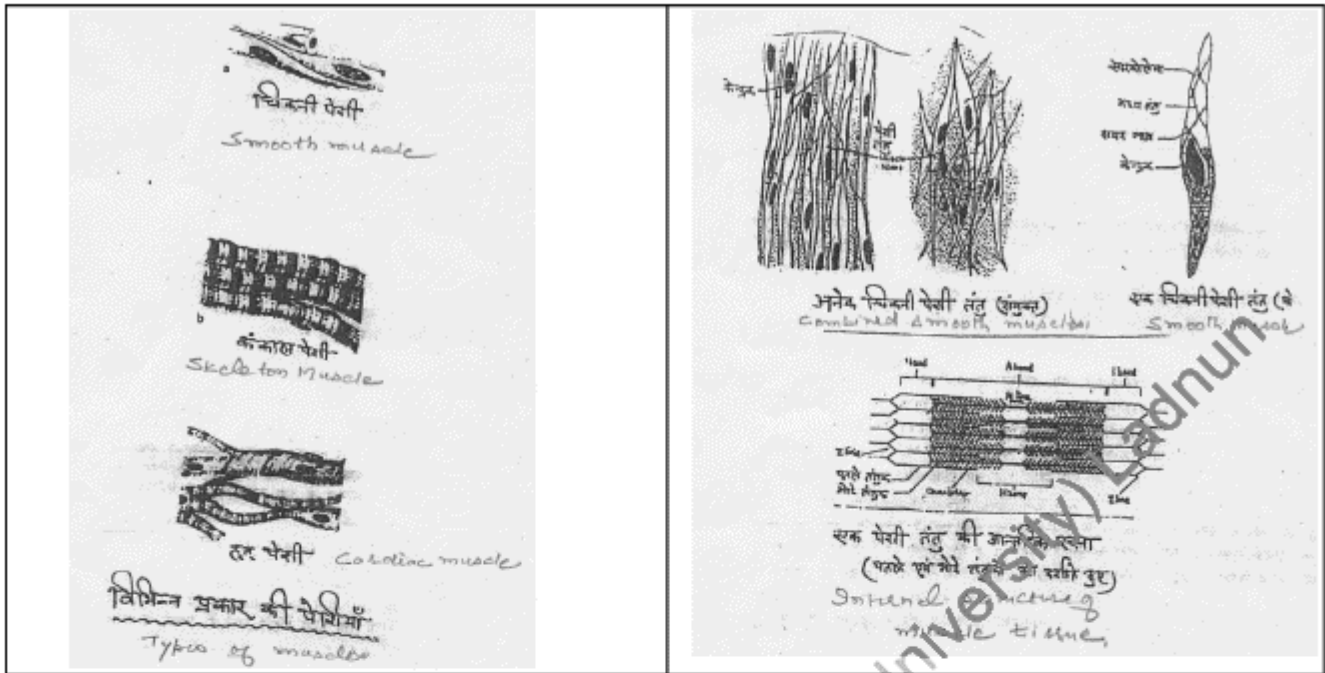 a
चिकनी पेशी
Smooth muscle
b
कंकाल पेशी
Skeleton Muscle
हृद पेशी Cardiac muscle
विभिन्न प्रकार की पेशियाँ
Types of muscles
केन्द्रक
पेशी
तंतु
केन्द्रक
अनेक चिकनी पेशी तंतु (संयुक्त)
Combined smooth muscles
एक चिकनी पेशी तंतु
Smooth muscle
I band
A band
I band
Z line
पतले तंतुक
मोटे तंतुक
H zone
Z line
एक पेशी तंतु की आन्तरिक रचना
(पतले एवं मोटे
Internal structure of
muscle tissue
University) Ladnun